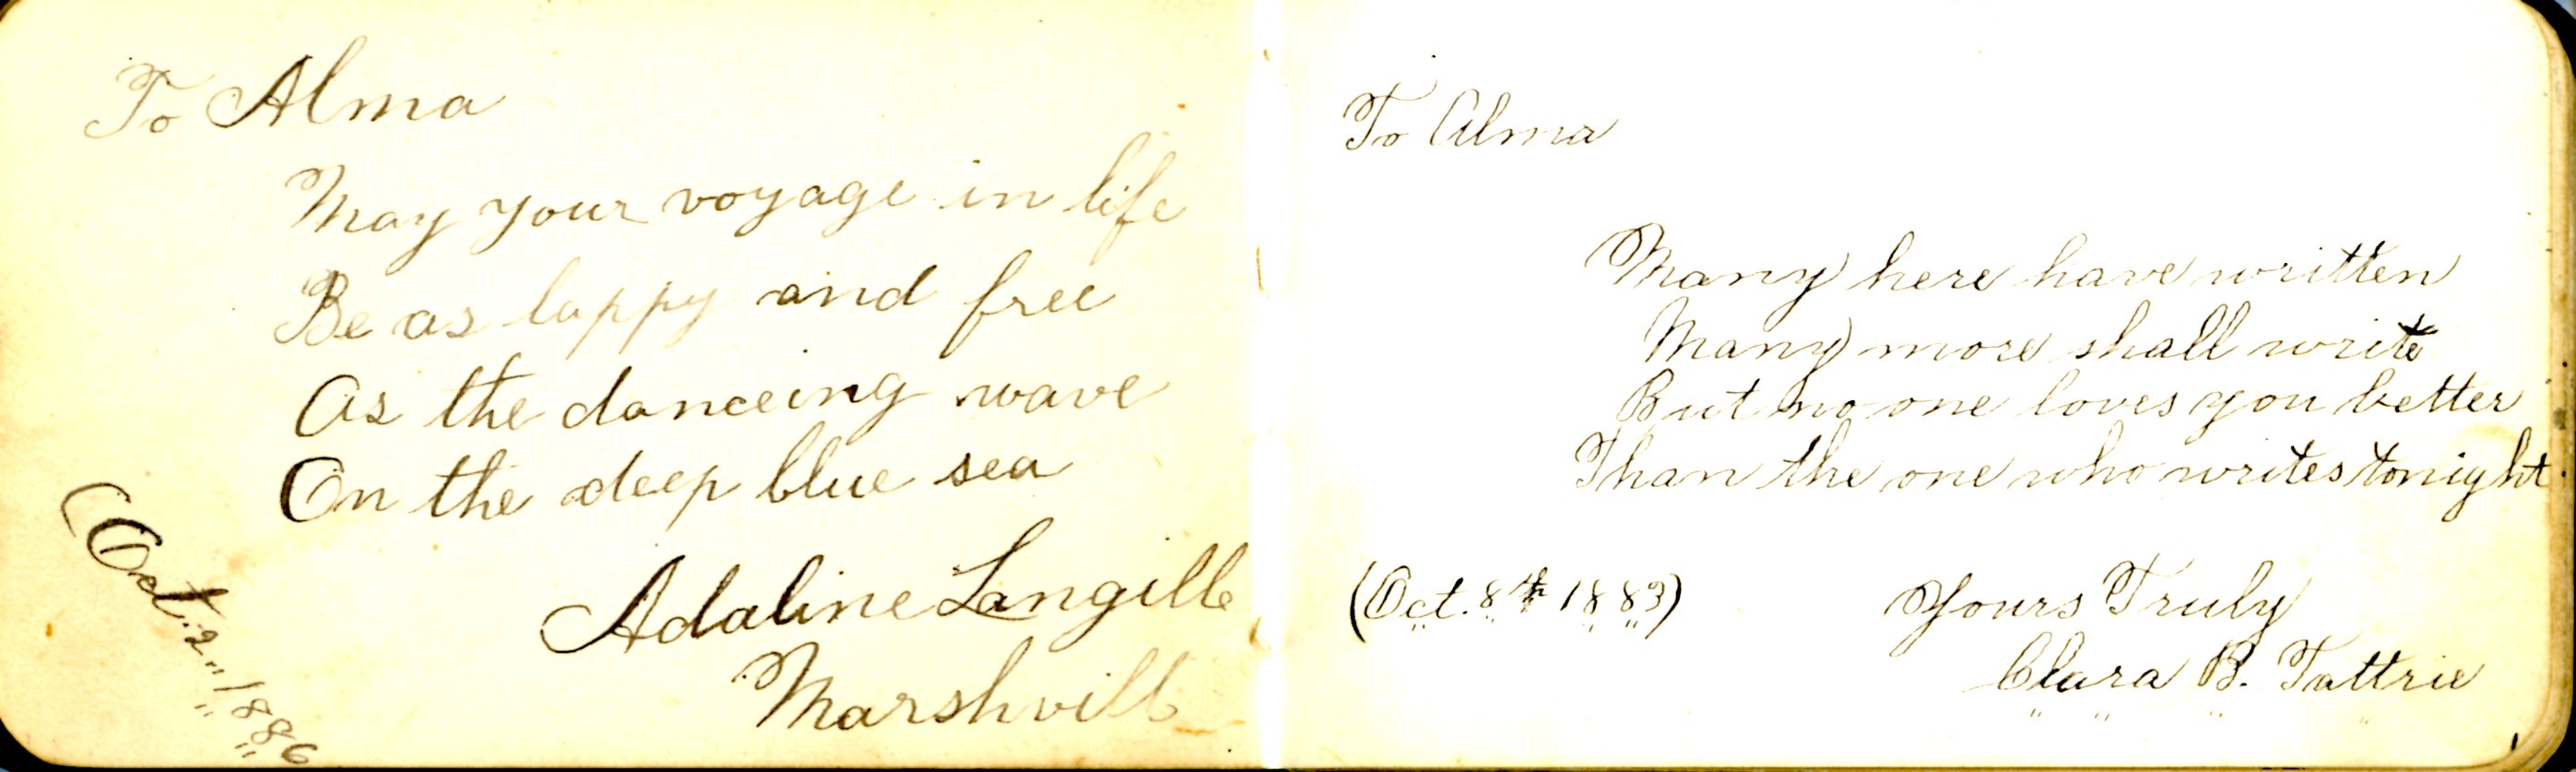 To Alma
May your voyage in life
Be as happy and free
As the danceing wave
On the deep blue sea
Adaline Langille
Marshvill
(Oct. 2" 1886
To Alma
Many here have written
Many more shall write
But no one loves you better
Than the one who writes tonight.
(Oct. 8th 1883)
Yours Truly
Clara B. Tattrie